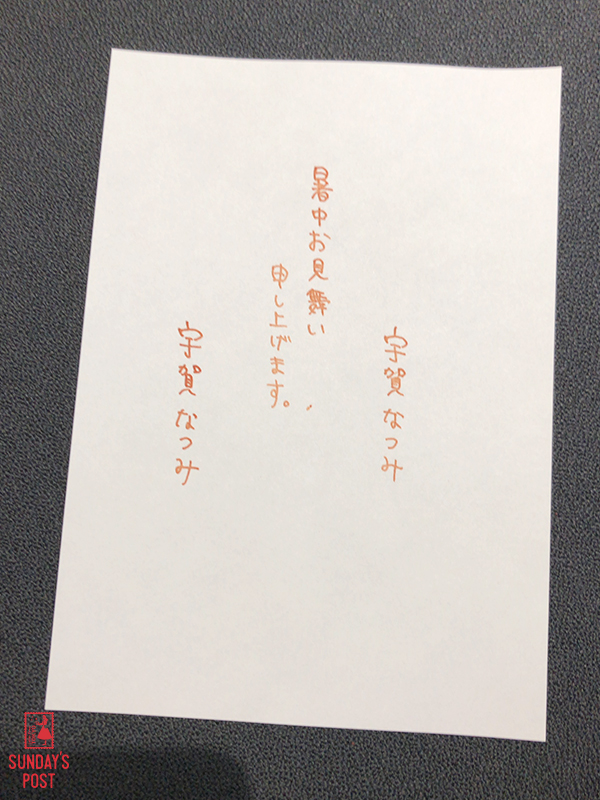 宇賀なつみ
暑中お見舞い
申し上げます。
宇賀なつみ
SUNDAY'S
POST